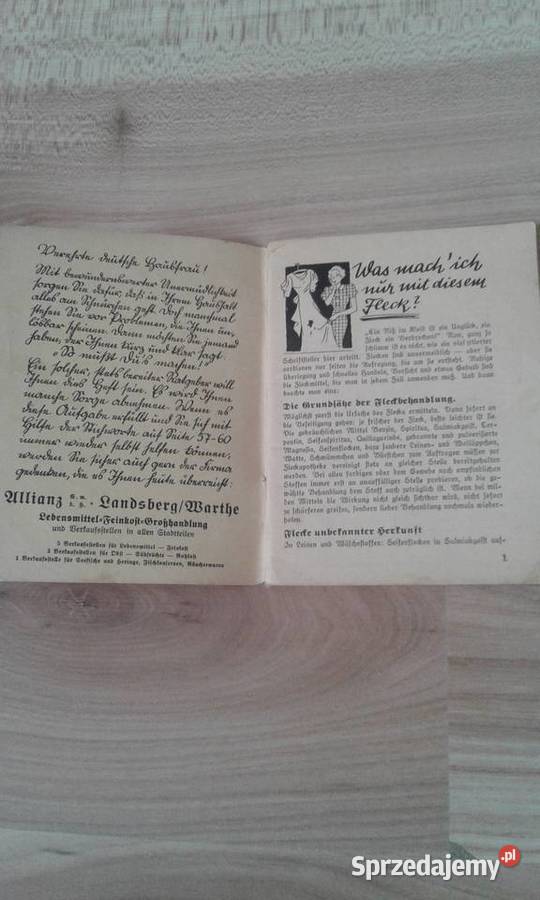 Verehrte deutsche Hausfrau!
Mit bewundernswerter Unermüdlichkeit
sorgen Sie dafür, daß in Ihrem Haushalt
alles am Schnürchen geht. Doch manchmal
stehen Sie vor Problemen, die Ihnen un-
lösbar scheinen. Dann möchten Sie jemand
haben, der Ihnen kurz und klar sagt:
„So müßt Du's machen!"
Ein solcher, stets bereiter Ratgeber will
Ihnen dies Heft sein. Es wird Ihnen
manche Sorge abnehmen. Wenn es
diese Aufgabe erfüllt und Sie sich mit
Hilfe der Stichworte auf Seite 57-60
immer wieder selbst helfen können,
werden Sie sicher auch gern der Firma
gedenken, die es Ihnen heute überreicht:
Allianz G. m. b. H. · Landsberg/Warthe
Lebensmittel-Feinkost-Großhandlung
und Verkaufsstellen in allen Stadtteilen
5 Verkaufsstellen für Lebensmittel — Feinkost
2 Verkaufsstellen für Obst — Südfrüchte — Rohkost
1 Verkaufsstelle für Seefische und Heringe, Fischkonserven, Räucherwaren
Was mach' ich
nur mit diesem
Fleck?
„Ein Riß im Kleid ist ein Unglück, ein
Fleck ein Verbrechen!" Nun, ganz so
schlimm ist es nicht, wie ein viel zitierter
Schriftsteller hier urteilt. Flecken sind unvermeidlich — aber sie
verlieren nur selten die Befragung, die an sie erfolgt. Ruhige
Überlegung und schnelles Handeln, Vorsicht und etwas Geduld sind
die Fleckmittel, die man in jedem Fall anwenden muß. Und dann
beachte man eins:
Die Grundsätze der Fleckbehandlung.
Möglichst zuerst die Ursache des Fleckes ermitteln. Dann sofort an
die Beseitigung gehen: je frischer der Fleck, desto leichter ist er
Die gebräuchlichen Mittel Benzin, Spiritus, Salmiakgeist, Ter-
pentin, Seifenspiritus, Quillajarinde, gebrannte und pulverisierte
Magnesia, Seifenflocken, dazu saubere Leinen- und Wolläppchen,
Watte, Schwämmchen und Bürstchen zum Auftragen müssen zur
Fleckapotheke vereinigt stets an gleicher Stelle bereitgehalten
werden. Bei allen farbigen oder dem Gewebe nach empfindlichen
Stoffen immer erst an unauffälliger Stelle probieren, ob die ge-
wählte Behandlung dem Stoff auch zuträglich ist. Wenn bei mil-
den Mitteln die Wirkung nicht gleich sichtbar wird, nicht sofort
zu schärferen greifen, sondern die Behandlung nochmals wieder-
holen.
Flecke unbekannter Herkunft
In Leinen und Wäschestoffen: Seifenflocken in Salmiakgeist auf-
1
Sprzedajemy.pl